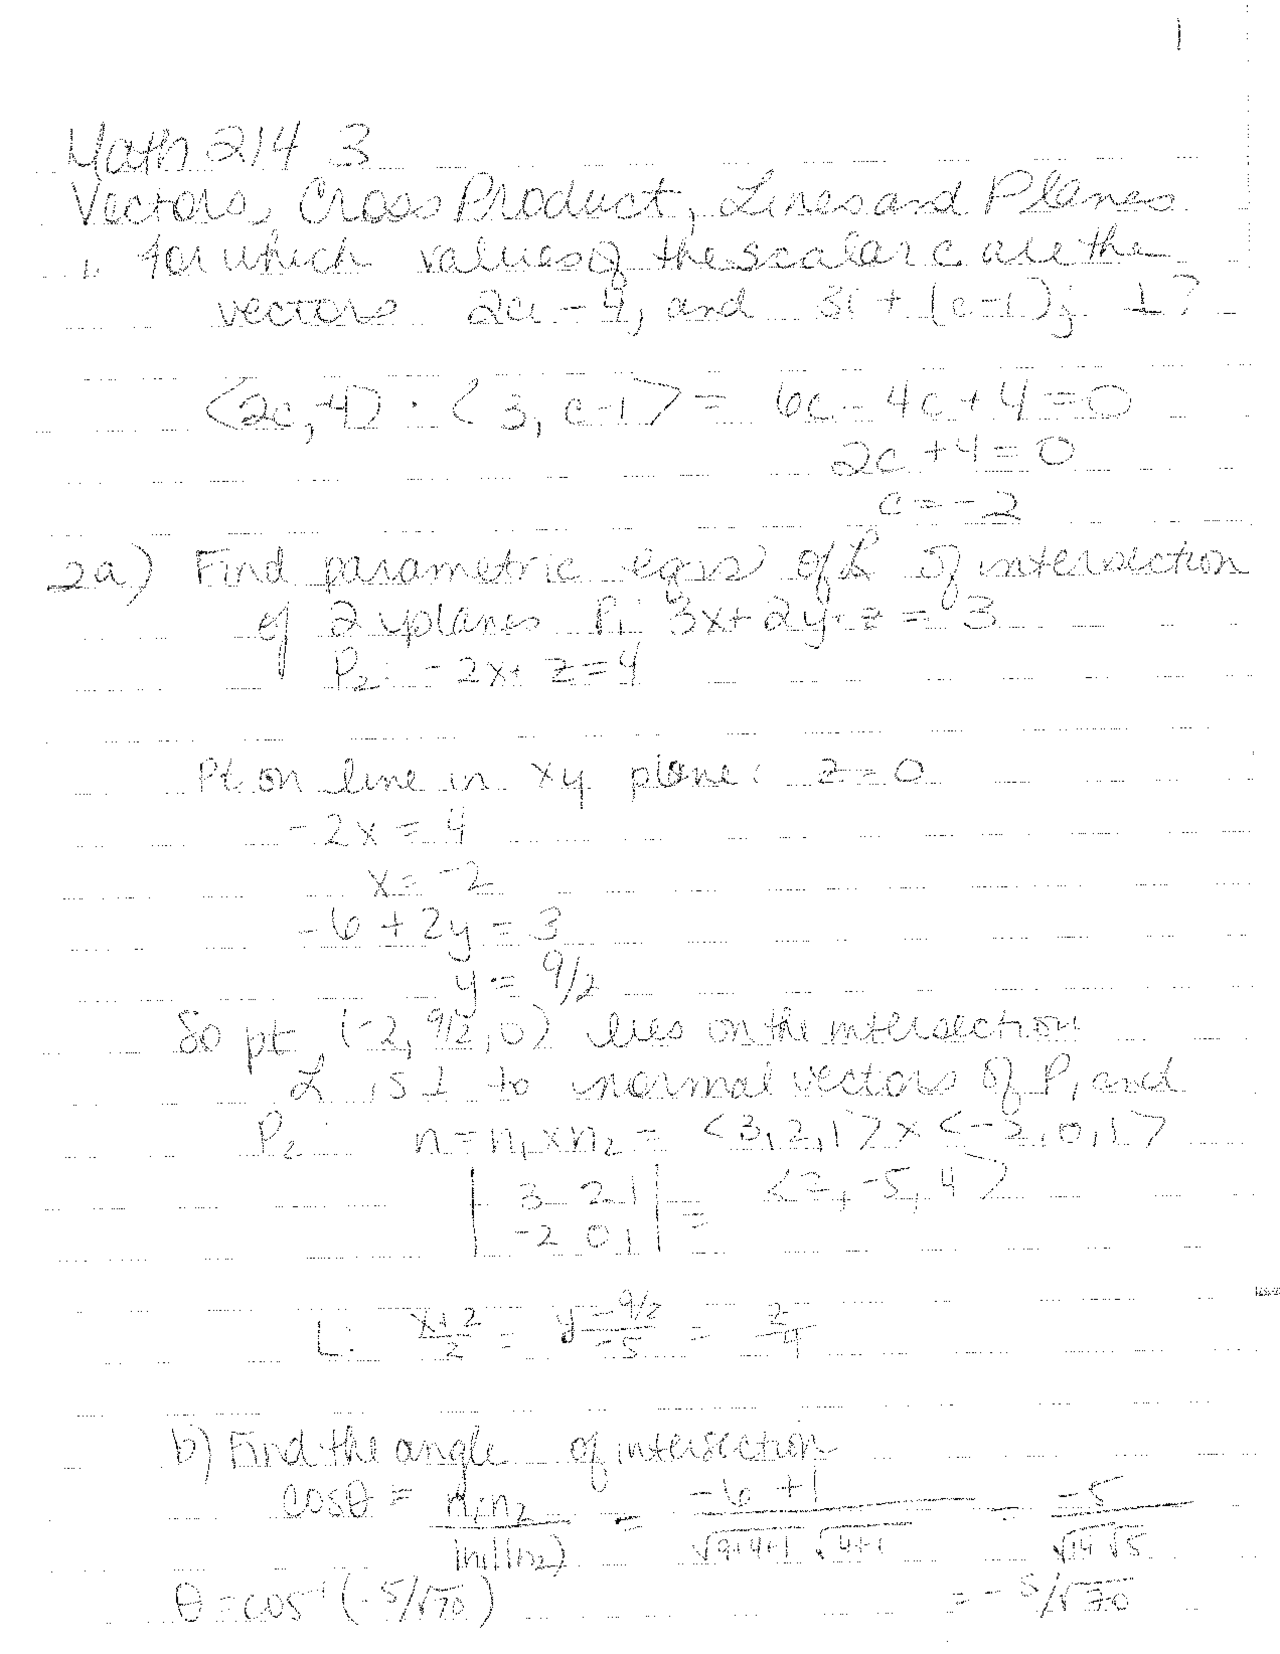 1
Math 214 3
Vectors, Cross Product, Lines and Planes
1. For which values of the scalar c are the
vectors 2ci - 4j and 3i + (c-1)j ⊥?
<2c, -4> · <3, c-1> = 6c - 4c + 4 = 0
2c + 4 = 0
c = -2
2a) Find parametric eqns of L of intersection
of 2 planes P₁: 3x + 2y + z = 3
P₂: -2x + z = 4
Pt on line in xy plane: z = 0
-2x = 4
x = -2
-6 + 2y = 3
y = 9/2
So pt (-2, 9/2, 0) lies on the intersection
L is ⊥ to normal vectors of P₁ and
P₂: n = n₁ x n₂ = <3, 2, 1> x <-2, 0, 1>
| 3 2 1 | = <2, -5, 4>
| -2 0 1 |
L: x+2/2 = y - 9/2/-5 = z/4
b) Find the angle of intersection
cosθ = n₁·n₂/|n₁||n₂| = -6 + 1/√9+4+1 √4+1 = -5/√14 √5
θ = cos⁻¹(-5/√70) = -5/√70